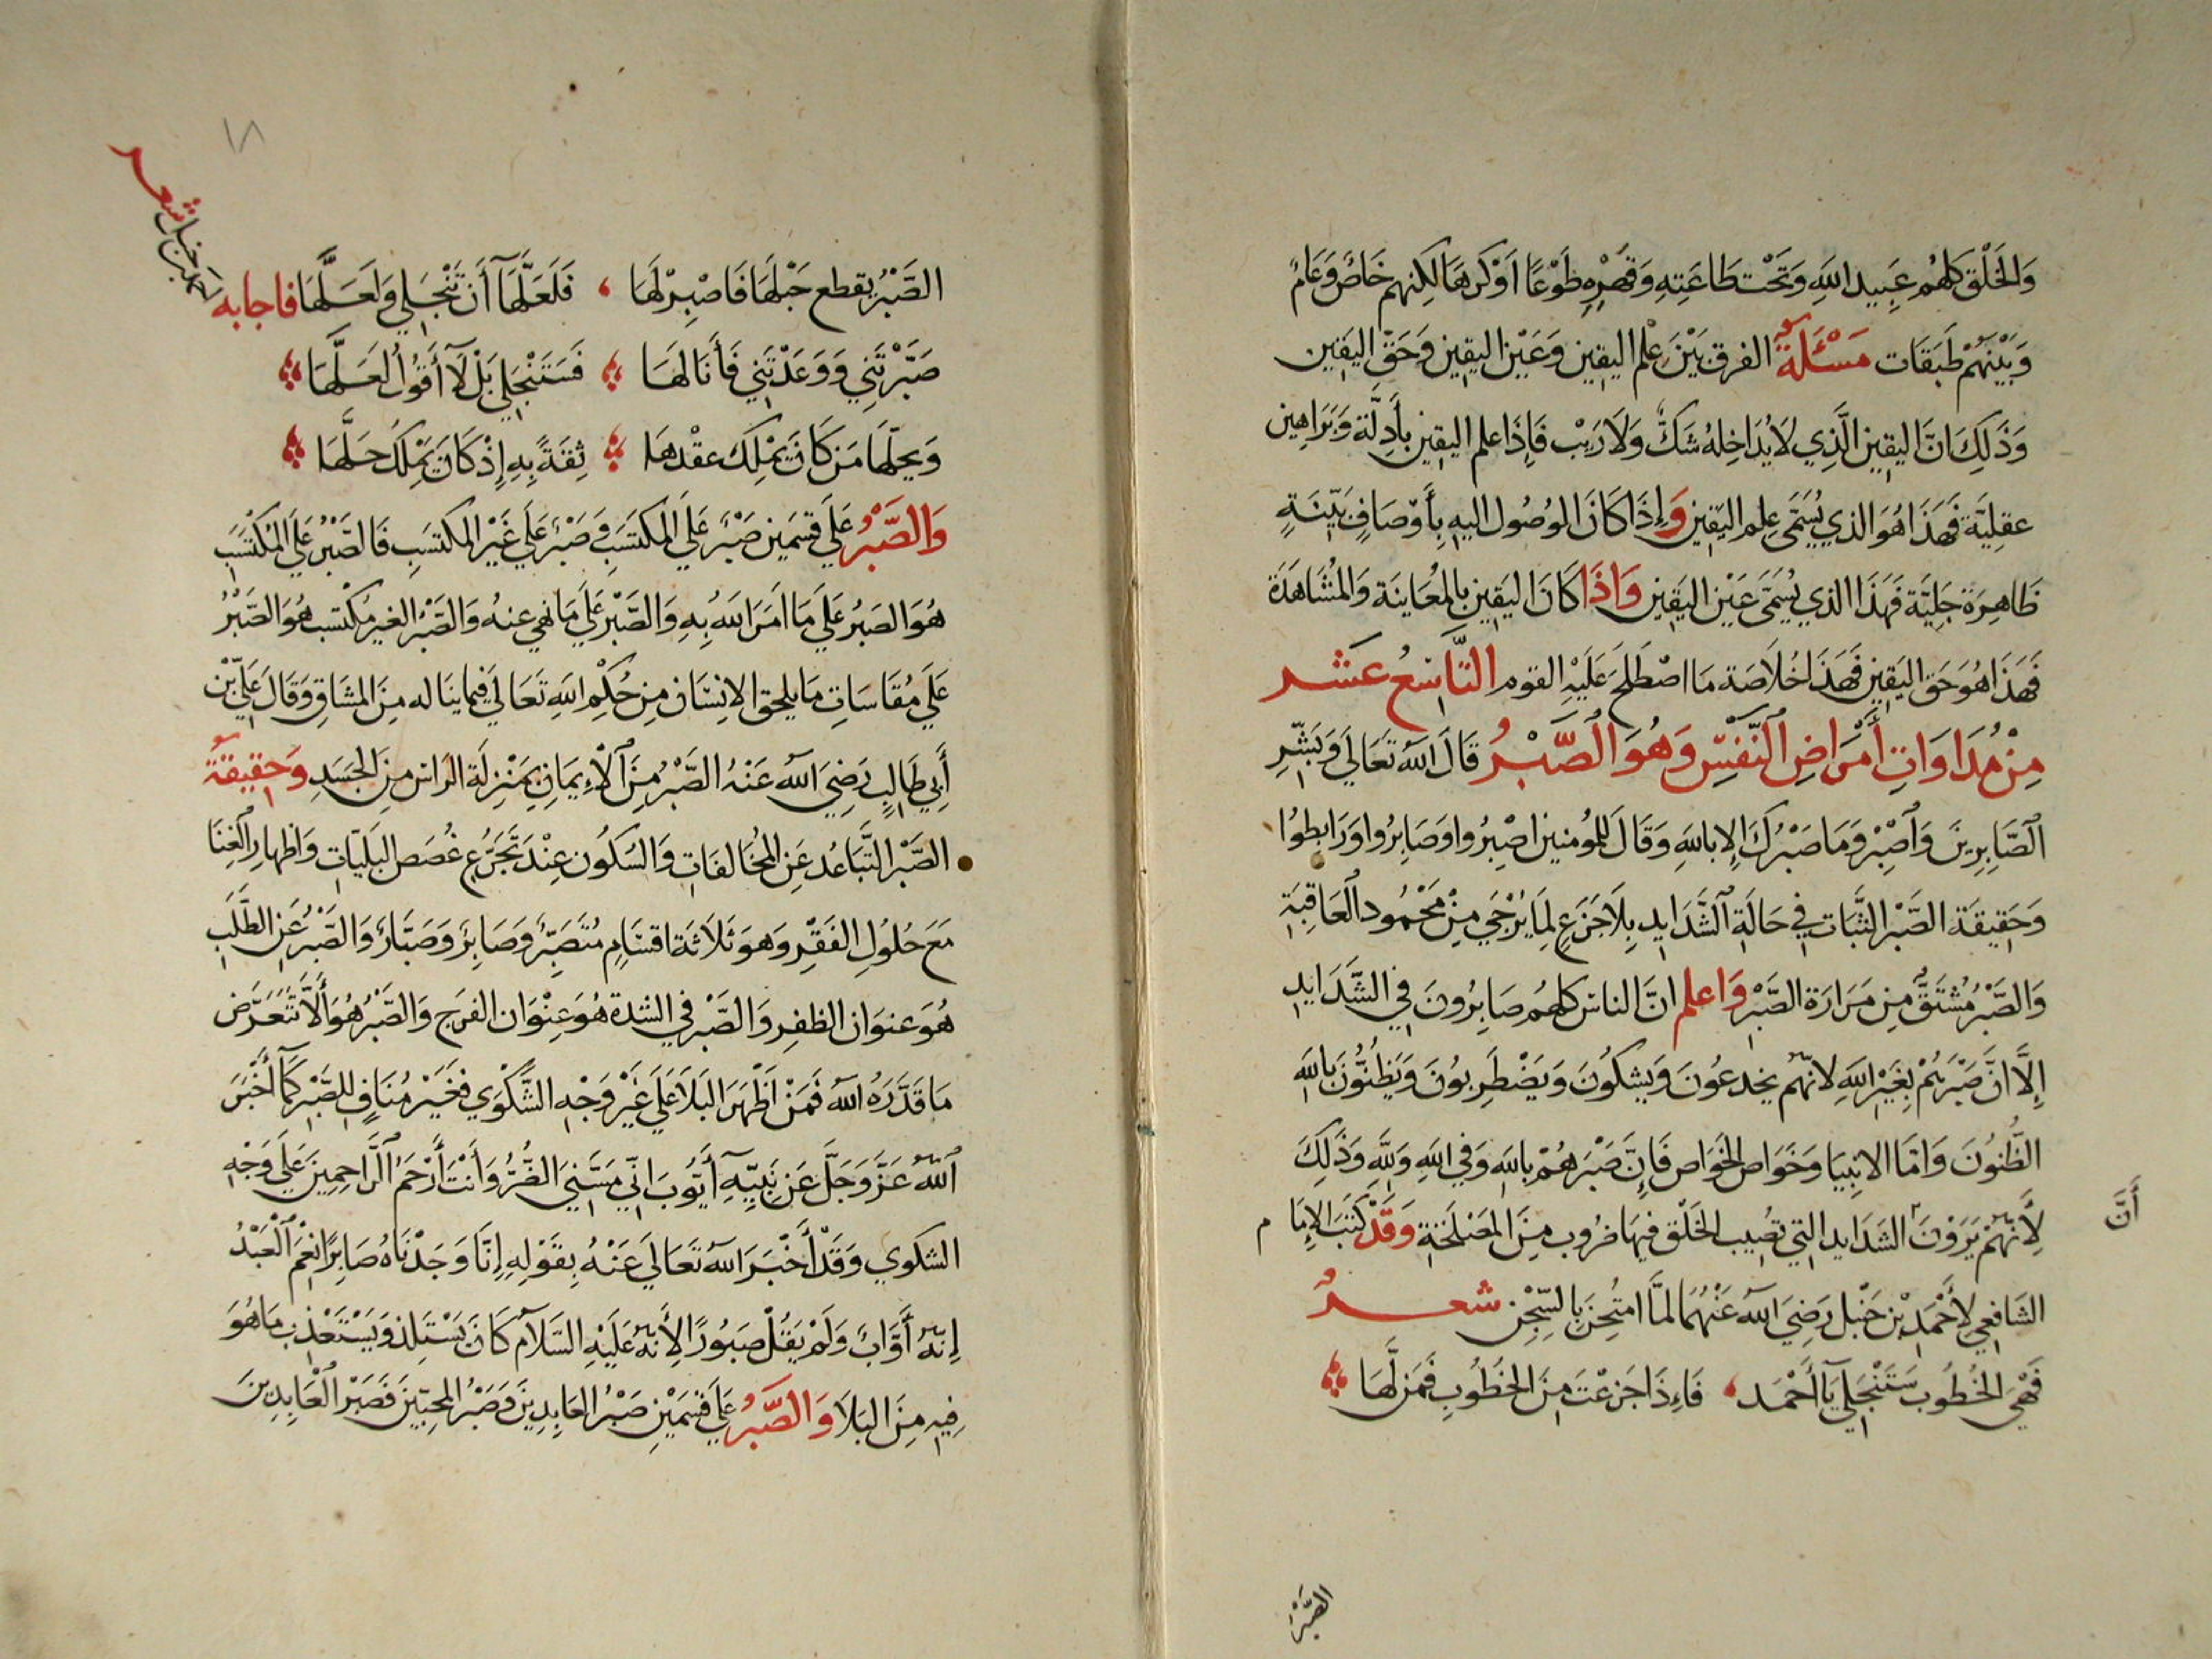 وَالخَلْق كلهُم عَبِيد اللهِ وَتَحْت طَاعَتِهِ وَقَهْرِهِ طَوْعًا اَوْ كَرهَا لكِنهم خَاصٌ وَعَامٌ
وَبَيْنَهُمْ طَبَقَات مَسْئَلَة الفرق بَيْنَ عِلْم اليقِين وَعَيْن اليقِين وَحَقّ اليَقِين
وَذَلِكَ انَّ اليقِين الَّذِي لَا يُدَاخِلهُ شَكٌّ وَلَا رَيْب فَإِذَا علم اليقِين بِأَدِلَّة وَبَرَاهِين
عقلِيَّة فَهَذَا هُوَ الذي يُسَمَّى عِلم اليَقِين وَإِذَا كَانَ الوُصُول اليهِ بِأَوْصَافٍ بَيِّنَةٍ
ظَاهِرَة جَلِيَّة فَهَذَا الذي يُسَمَّى عَيْن اليَقِين وَاذَا كَانَ اليَقِين بالمُعَايَنَة وَالمُشَاهَدَة
فَهَذَا هُوَ حَق اليَقِين فَهَذَا خُلَاصَة مَا اصْطَلَحَ عَلَيْهِ القوم التَّاسِعُ عَشَر
مِنْ مُدَاوَاتِ أَمْرَاضِ ٱلنَّفْسِ وَهُوَ الصَّبْرُ قَالَ اللهُ تَعَالَي وَبَشِّرِ
ٱلصَّابِرِينَ وَٱصْبِرْ وَمَا صَبْرُكَ الإ باللهِ وَقَالَ لِلمُومنين اصْبِرُوا وَصَابِرُوا وَرَابِطُوا
وَحَقِيقَة الصَّبْر الثَّبَات فِي حَالَةِ ٱلشَّدَايِد بِلَا جَزَعٍ لِمَا يُرْجَي مِنْ مَحْمُود ٱلعَاقِبَةِ
وَالصَّبْرُ مُشْتَقٌّ مِن مَرَارَة الصَّبْر وَاعلم انَّ الناس كلهُم صَابِرُونَ فِي الشَّدَايدِ
إِلَّا انَّ صَبْرَهُمْ بِغَيْرِ اللهِ لانهُم يخدعُونَ وَيشكُونَ وَيَضْطَرِبُونَ وَيَظُنُّونَ بالله
الظُّنُونَ وَامَّا الانبِيا وَخَوَاص الخَوَاص فَإِنَّ صَبْرهُمْ باللهِ وَفي اللهِ وَلِلَّهِ وَذَلِكَ
أَنَّ
لِأَنهُمْ يَرَوْنَ الشَدَايد التي تصِيب الخَلْق فِيهَا ضرُوب مِنَ المَصْلَحَةِ وَقَدْ كَتَبَ الإِمَام
الشَافِعِي لِأَحْمَدِ بْن حَنْبَل رَضِيَ اللهُ عَنْهُمَا لمَّا امتُحِنَ بِالسِّجْن شعرٌ
فَهْيَ الخُطُوب سَتَنْجَلِي يَا أَحْمَد ، فَاءِذَا جَزعْتَ مِنَ الخُطُوبِ فَمَن لَّهَا
الصَّبْرُ
١٨
الصَّبْرُ يقطع حَبْلَهَا فَاصْبِرْ لَهَا ، فَلَعَلَّهَا أَنْ تَنْجَلِي وَلَعَلَّهَا فاجابه
احمد بن حنبل شعر
صَبَّرْتَنِي وَوَعَدْتَنِي فَأَنَا لهَا فَسَتَنْجَلِي بَلْ لَا أَقُولُ لَعَلَّهَا
وَيحلّهَا مَن كَانَ يَمْلِك عقْدهَا ثِقَةً بِهِ إِذْ كَانَ يَمْلِكُ حَلَّهَا
وَالصَّبْرُ عَلَي قسَمَين صَبْر عَلَي المكتَسَبِ وَصَبْرٌ عَلَي غَيْر المكتسَبِ فَالصَّبْرُ عَلَي المكتَسَبِ
هُوَ الصَبرُ عَلَي مَا امَرَ اللهُ بِهِ وَالصَّبْرِ عَلَي مَا نهي عنهُ وَالصَّبْرُ الغير مُكتَسب هُوَ الصَّبْرُ
عَلَي مُقَاسَاتِ مَا يلحق الانِسَان مِن حُكْمِ اللهِ تَعَالَي فِيمَا يَنَاله مِنَ المشَاقِ وَقَالَ عَلِيّ بْن
أَبِي طَالِبٍ رَضِيَ اللهُ عَنْهُ الصَّبْرُ مِنَ ٱلْاءِيمَانِ بِمَنْزِلَةِ الرَاس مِنَ الجَسَدِ وَحَقِيقَة
الصَّبْر التَّبَاعُد عَنِ المخَالفَاتِ وَالسكُون عِنْدَ تَجَرُّعِ غُصَص البَلِيَّاتِ وَاظهَار ٱلغِنَا
مَعَ حُلُولِ الفَقْرِ وَهوَ ثَلَاثَة اقسَامٍ مُتَصَبِّرٌ وَصَابِرٌ وَصَبَّارٌ وَالصَّبْرُ عَنِ الطَّلَبِ
هُوَ عنوَان الظفِر وَالصَّبْر فِي الشدة هُوَ عِنْوَان الفَرَجِ وَالصَّبْرُ هُوَ أَلَّا تَتَعَرَّض
مَا قَدَّرَهُ اللهُ فَمَنْ اظْهَرَ البَلَا عَلَي غَيْر وَجْهِ الشَّكْوَي فغَيْرَ مُنَافٍ لِلصَّبْرِ كَمَا أَخْبَرَ
ٱللهُ عَزَّ وَجَلَّ عَن نَبِيّهِ أَيُّوبَ انِّي مَسَّنِيَ الضُّرُّ وَأَنْتَ أَرْحَمُ ٱلرَّاحِمِينَ عَلَي وَجْهِ
الشكوي وَقَدْ أَخْبَرَ اللهُ تَعَالَي عَنْهُ بِقَوْلِهِ إِنَّا وَجَدْنَاهُ صَابِرًا نِعْمَ ٱلْعَبْدُ
إِنهُ أَوَّابٌ وَلَمْ يَقُلْ صَبُورًا لِأَنهُ عَلَيْهِ السَّلَامُ كَانَ يَسْتَلِذ وَيَسْتَعْذِب مَا هُوَ
فِيهِ مِنَ البَلَا وَالصَّبْرُ عَلَي قِسْمَيْنِ صَبْر العَابِدِينَ وَصَبْر المحِبّينَ فَصَبْر ٱلْعَابِدِينَ